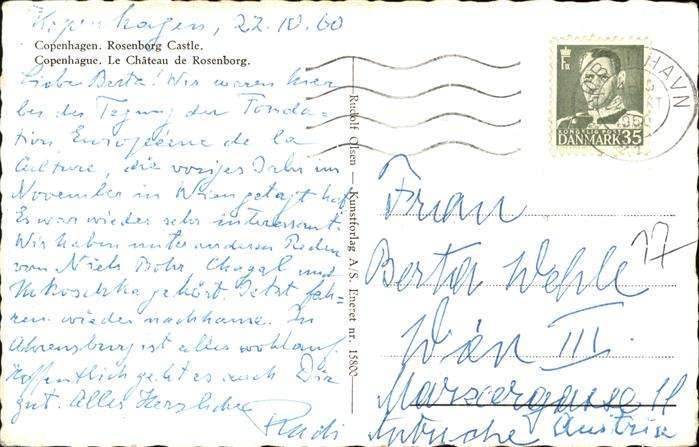 Kopenhagen, 22.10.60
Copenhagen. Rosenborg Castle.
Copenhague. Le Château de Rosenborg.
Liebe Berta! Wir waren hier
bei der Tagung der Fonda-
tion Européenne de la
Culture, die voriges Jahr im
November in Wien getagt hat.
Es war wieder sehr interessant.
Wir haben unter anderen Reden
von Niels Bohr, Chagal und
Kokoschka gehört. Jetzt fah-
ren wieder nachhause. In
Ahrensburg ist alles wohlauf
Hoffentlich geht es auch Dir
gut. Alles Herzliche
Rudi
Rudolf Olsen — Kunstforlag A/S. Eneret nr. 15800
KØBENHAVN
KONGELIG POST
DANMARK 35
Frau
Berta Wehle
17
Wien III.
Marxergasse 11
Austria